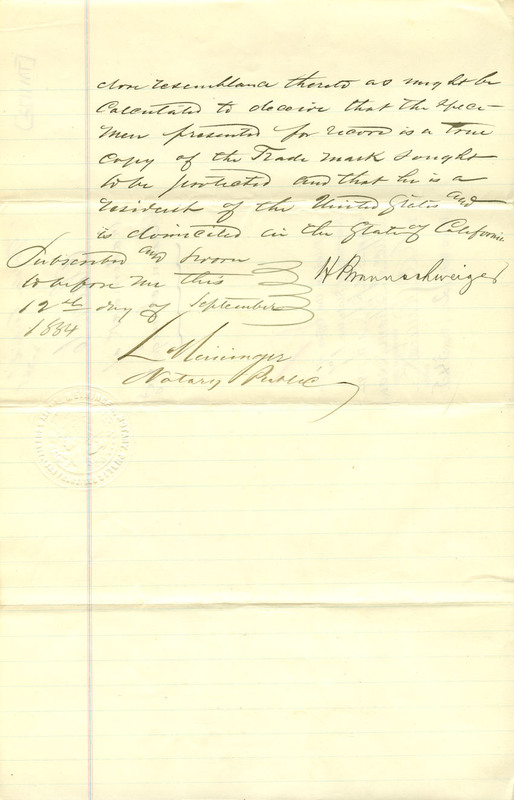 close resemblance thereto as might be
calculated to deceive that the speci-
men presented for record is a true
copy of the Trade mark sought
to be protected and that he is a
resident of the United States and
is domiciled in the State of California
Subscribed and sworn
to before me this
12th day of September
1884
H Braunschweiger
L Meininger
Notary Public